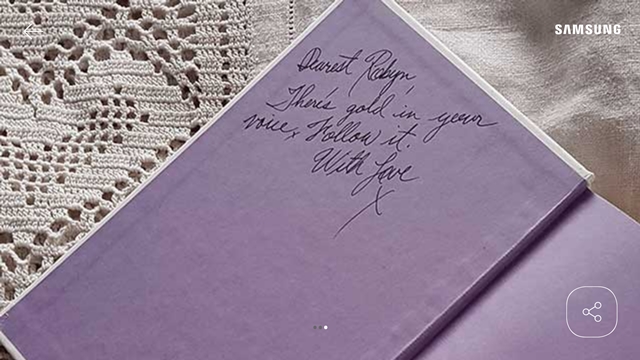 SAMSUNG
Dearest Robyn,
There's gold in your
voice, Follow it.
With Love
X